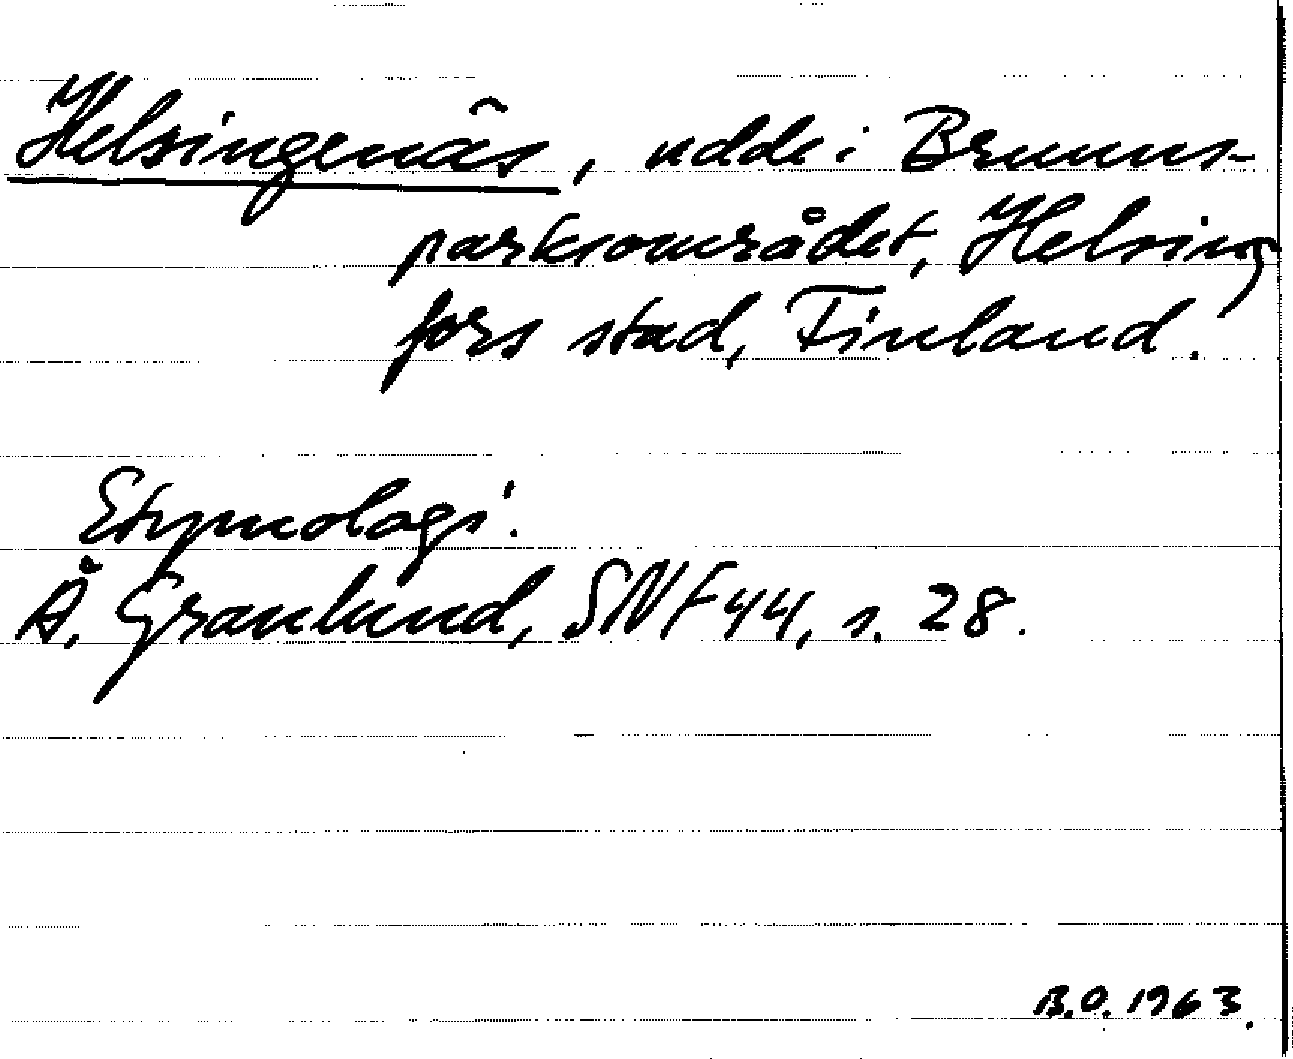 Helsingenäs, udde i Brunns-
parksområdet, Helsing
fors stad, Finland.
Etymologi.
Å. Granlund, SNF 44, s. 28.
B.O. 1963.